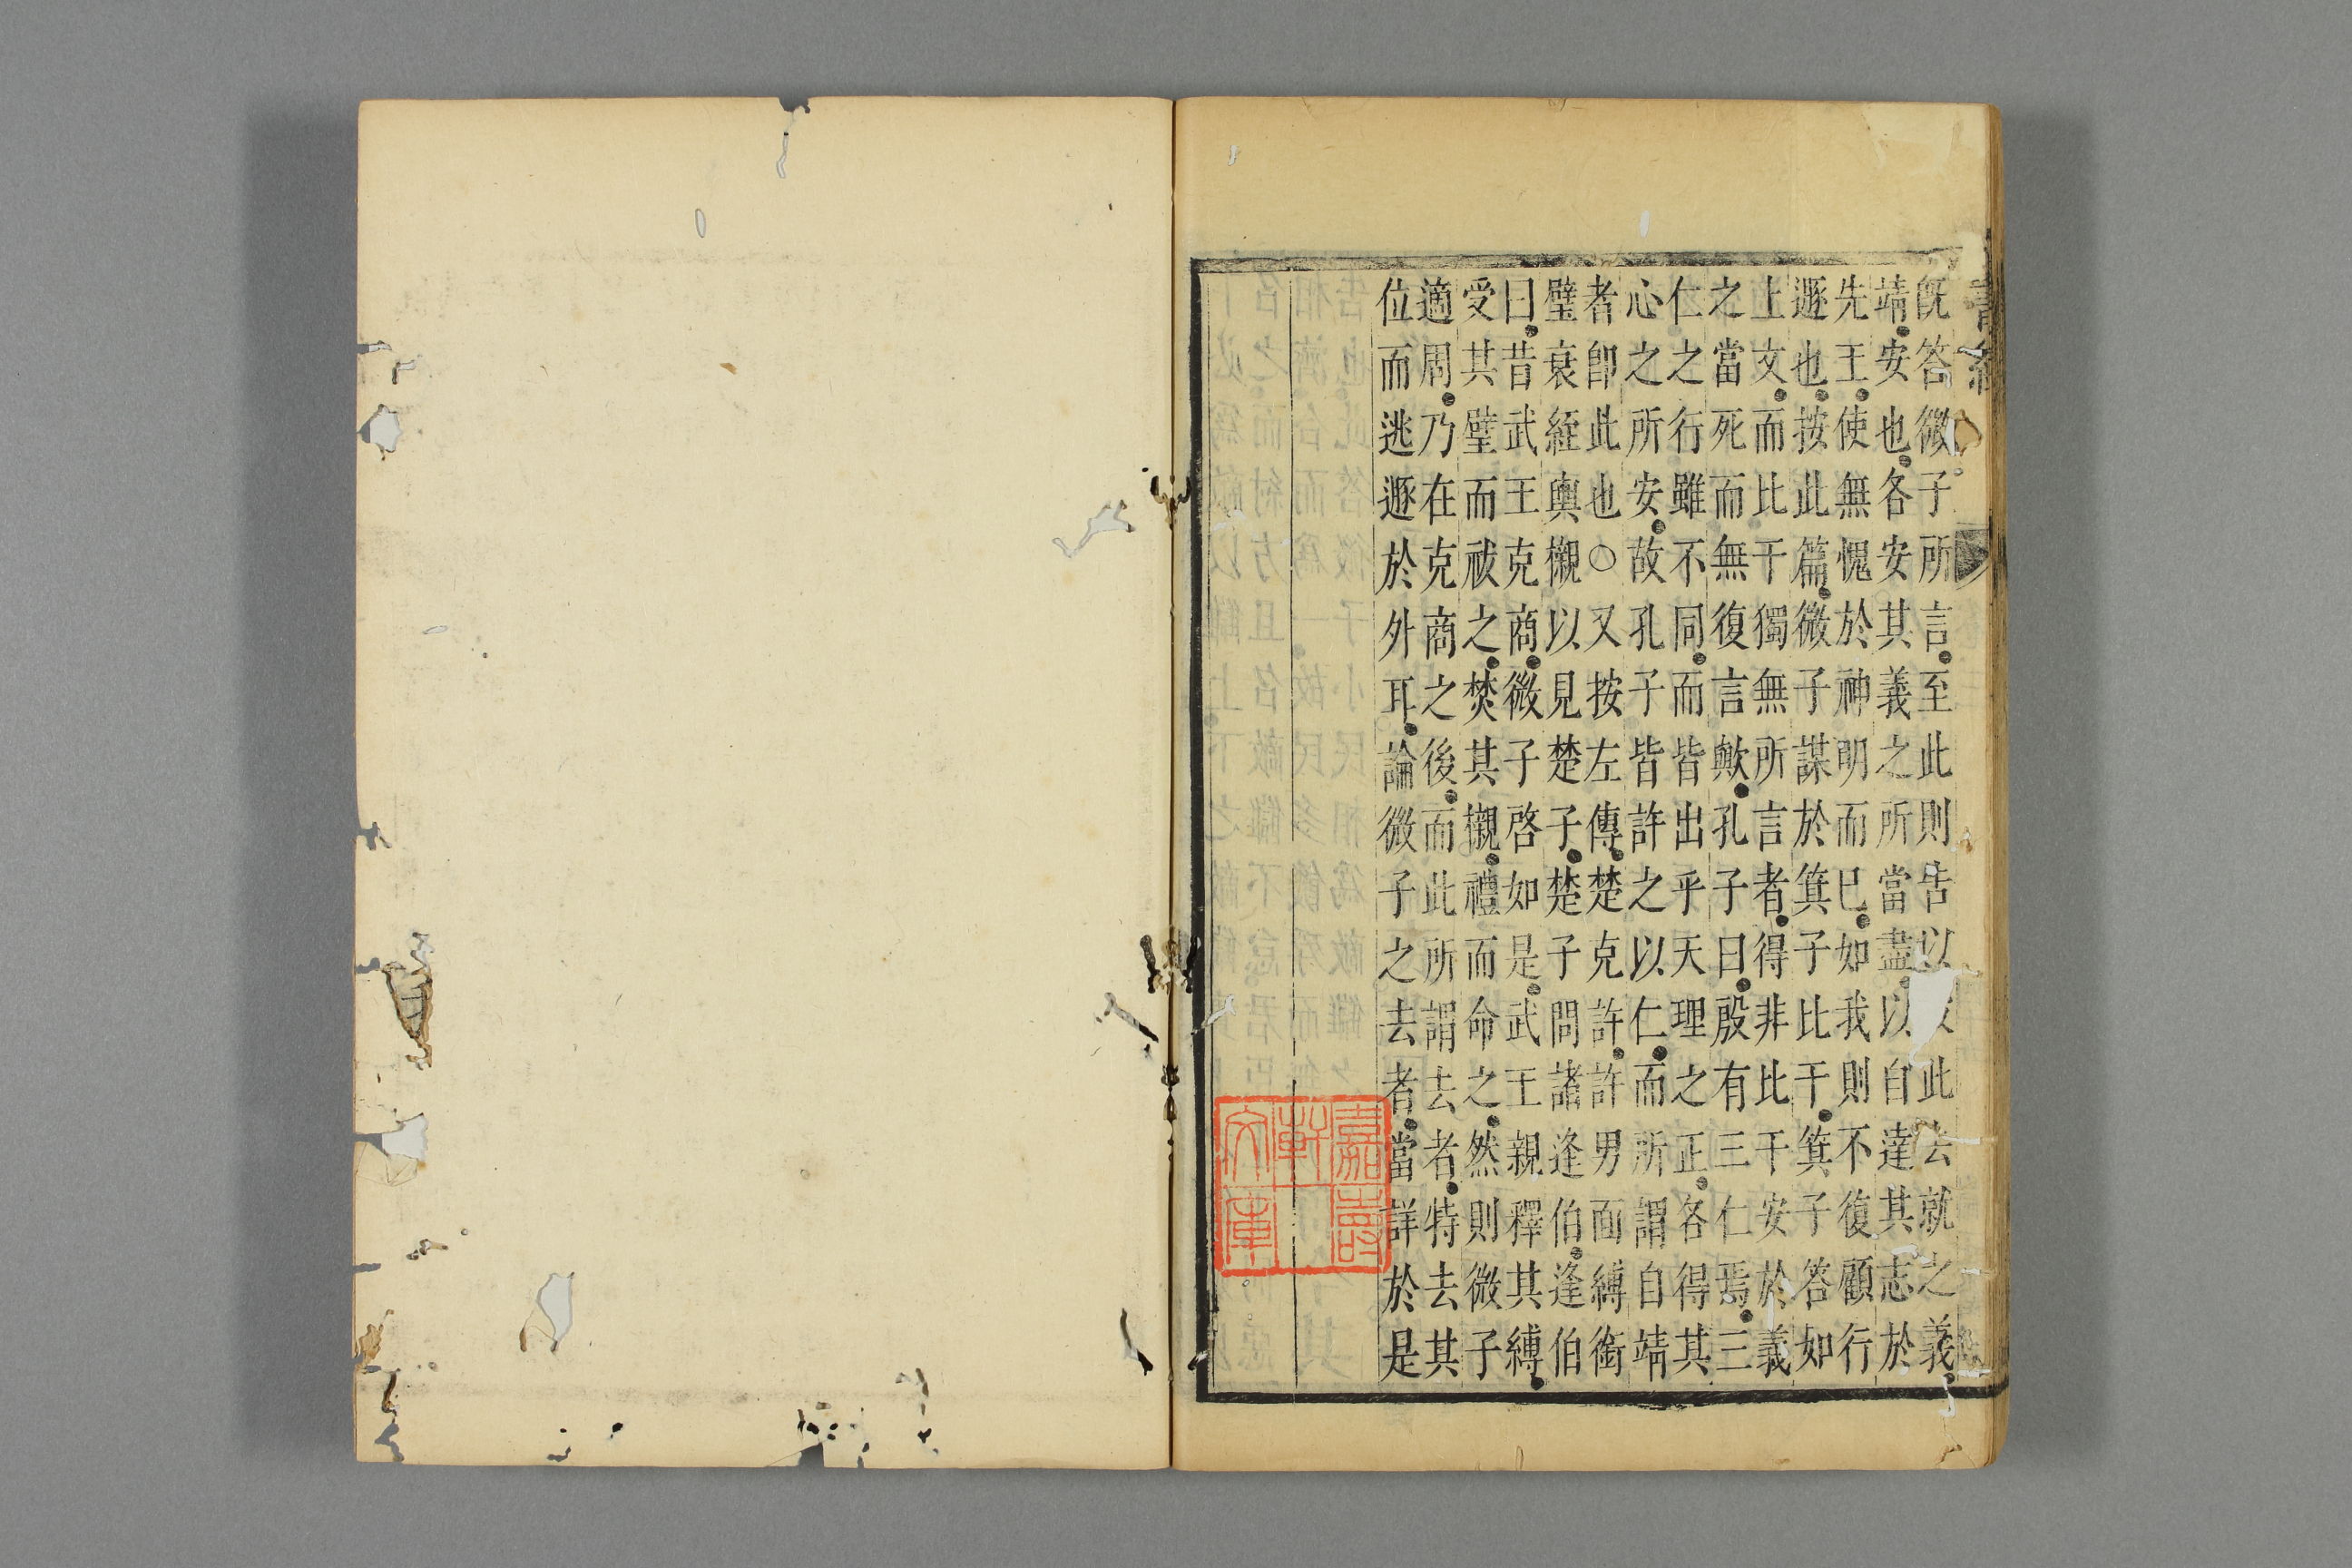 既答微子所言至此則告以彼此去就之義
靖安也各安其義之所當盡以自達其志於
先王使無愧於神明而已如我則不復顧行
遯也按此篇微子謀於箕子比干箕子答如
上文而比干獨無所言者得非比干安於義
之當死而無復言歟孔子曰殷有三仁焉三
仁之行雖不同而皆出乎天理之正各得其
心之所安故孔子皆許之以仁而所謂自靖
者卽此也○又按左傳楚克許許男面縛銜
璧衰絰輿櫬以見楚子楚子問諸逢伯逢伯
曰昔武王克商微子啓如是武王親釋其縛
受其璧而祓之焚其櫬禮而命之然則微子
適周乃在克商之後而此所謂去者特去其
位而逃遯於外耳論微子之去者當詳於是
嘉壽
軒
文庫